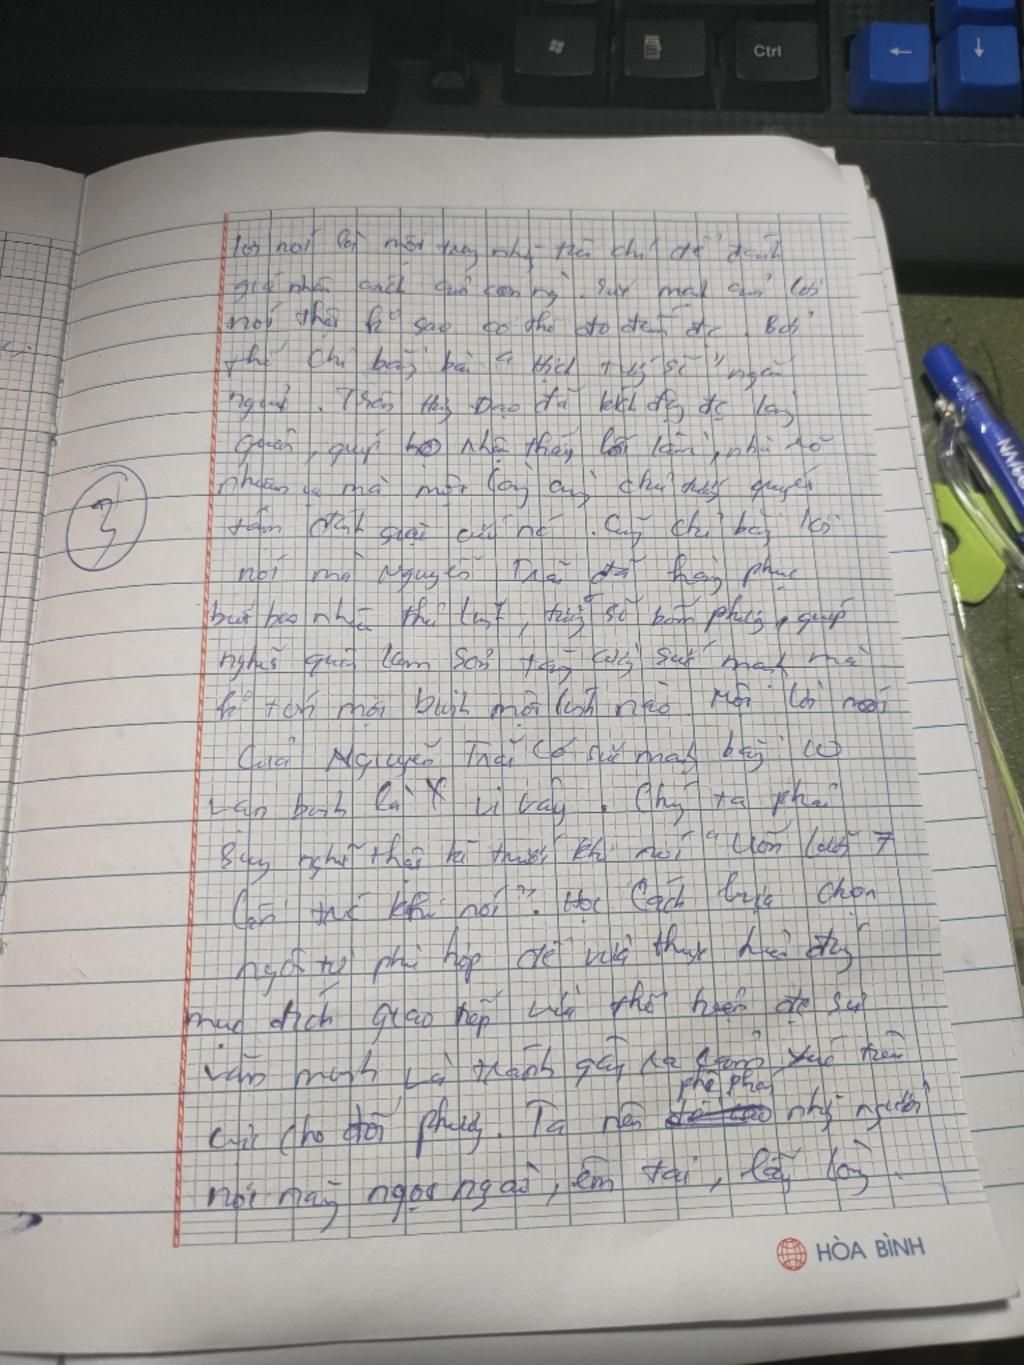 Ctrl
←
↓
lời nói là một trog nhữ tiêu chí để đánh
giá nhân cách của con ng`. Sức mạh của lời
nói thật k° sao có thể đo đếm đc. Bởi
thế chỉ bằg bài " Hịch tướg sĩ " ngắn
ngủi. Trần Hưg Đạo đã kích độg đc lòg
quân, giúp họ nhận thấy lỗi lầm,
mà một lòg chủ tướg quyết
tâm đáh giặc cứu nc. Cũg chỉ bằg lời
nói mà Nguyễn Trãi đã hàg phục
bao nhiu thàh luỹ, tướg sĩ bốn phươg, giúp
nghĩa quân Lam Sơn tăg cườg sức mạh mà
k° tốn một bih một lính nào. Mỗi lời nói
Của Nguyễn Trãi có sức mạh bằg 10
vạn binh là vì vậy. Chúg ta phải
suy nghĩ thật kĩ trước khi nói " Uốn lưỡi 7
lần trước khi nói ". Học Cách lựa chọn
ngôn từ phù hợp để vừa thực hiện đúg
mục đích giao tiếp vừa thể hiện đc sự
văn minh và tránh gây ra cảm xúc tiêu
cực cho đối phươg. Ta nên phê phán nhữ người
nói năg ngọt ngào, êm tai, lấy lòg.
3
HÒA BÌNH